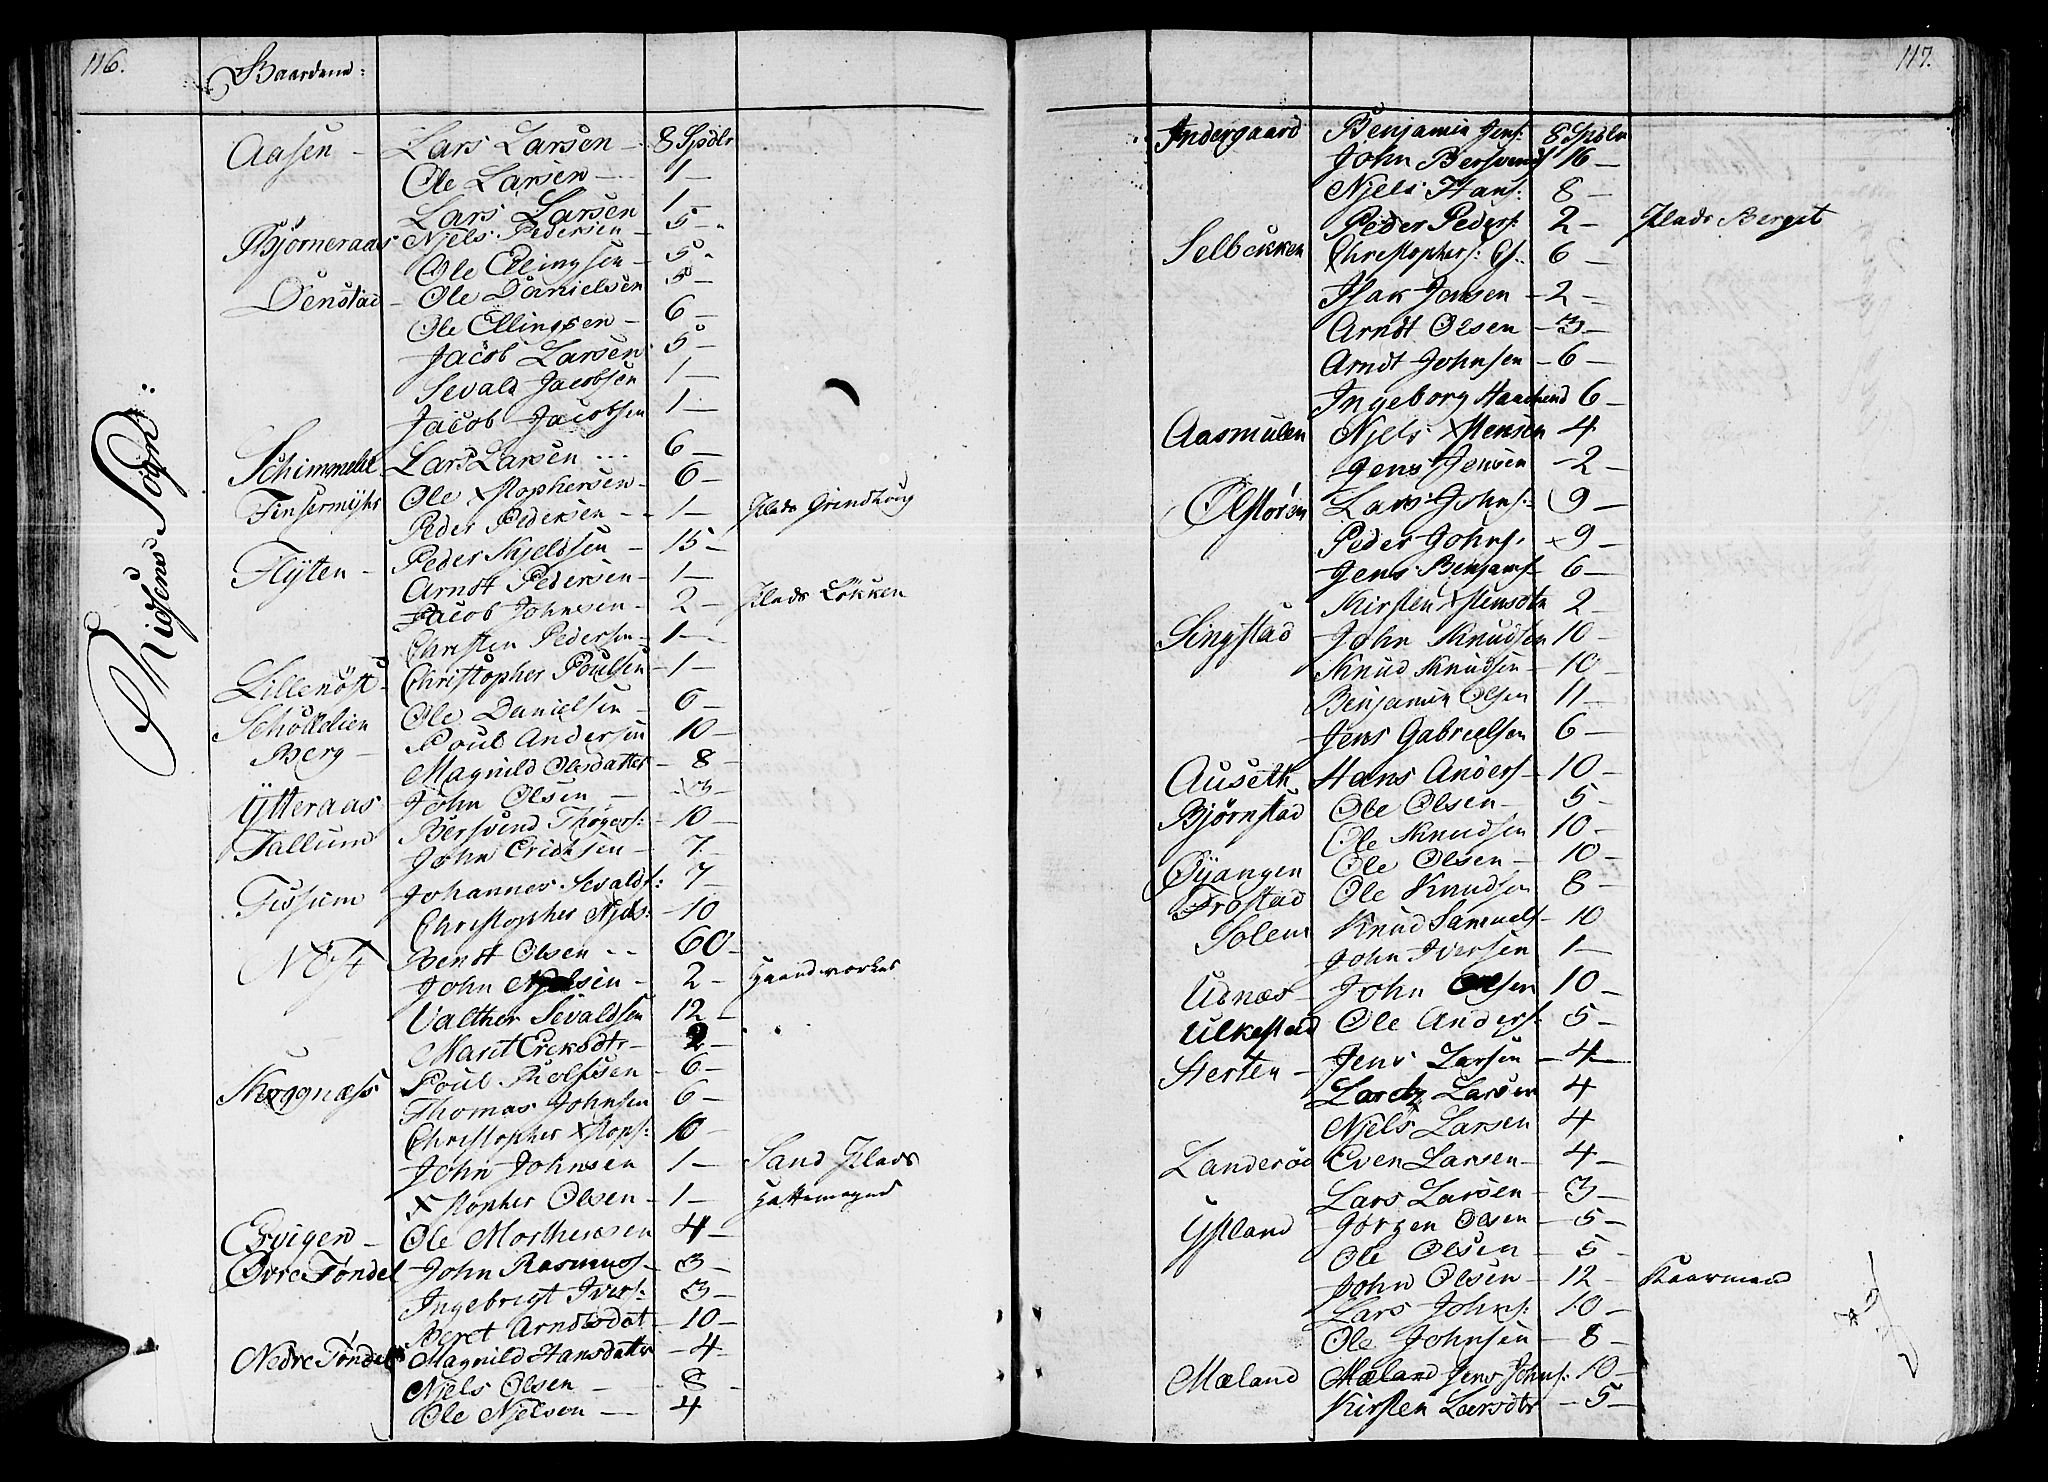 116.
Gaardene:
Ridsens Sogn:
Aasen - Lars Larsen - 8 Spdlr
Ole Larsen - 1 -
Lars Larsen 1 -
Bjørneraas Njels Pedersen - 5 -
Ole Ellingsen - 5 -
Denstad - Ole Danielsen 5 -
Ole Ellingsen - 6 -
Jacob Larsen 5 -
Sevald Jacobsen 1 -
Jacob Jacobsen 1 -
Schimmelie Lars Larsen ... 6 -
Finsermyhr Ole Xstophersen - 6 -
Peder Pedersen - 1 - Plads Grindhoug
Flyten - Peder Kjeldsen - 15 -
Arndt Pedersen - 1 -
Jacob Johnsen - 2 - Plads Løkken
Christen Pedersen - 1 -
Lillenøst - Christopher Poulsen - 1 -
Schøttelien Ole Danielsen - 6 -
Berg - Poul Andersen 10 -
Magnild Olesdatter - 8 -
Ytteraas John Olsen - 3 -
Tallum Bersvend Thøgers: - 10 -
John Erichsen - 7 -
Tissum Johannes Sevalds: 7 -
Christopher Njels: - 10
Nøst Bendt Olsen - - 60 -
John Njelsen - 2 - Haandværker
Valther Sevaldsen 12 -
Marit Ericksdtr - 2 -
Skoggnæss Poul Rolfsen - 6 -
Thomas Johnsen 6 -
Christopher Xstops: 10 -
John Johnsen 1 - Sand Plads
Xstopher Olsen - 1 - Hattemager
Ervigen - Ole Morthensen 4 -
Øvre Tøndel John Rasmus - 3 -
Ingebrigt Ivers: 3 -
Beret Arndtsdat - 10 -
Nedre Tøndel Magnild Hansdatter - 4 -
Njels Olsen - 8 -
Ole Njelsen - 4
117.
Indergaard Benjamin Jens: 8 Spdlr
John Bersvends 16 -
Njels Hans: 8 -
Peder Peders: 2 - Plads Berget
Selbekken Christophers: E: 6 -
Isak Jensen - 2 -
Arndt Olsen - 3 -
Arndt Johnsen - 6 -
Ingeborg 6 -
Aasmulen Njels Xstensen 4
Jens Jensen - 2 -
Ølstøren Lars Johns: 9 -
Peder Johns: 9 -
Jens Benjams - 6 -
Kirsten Xstensdtr 2 -
Singstad John Knudsen 10 -
Knud Knudsen - 10 -
Benjamin Olsen 11 -
Jens Gabrielsen 6 -
Auseth Hans Anders - 10 -
Bjørnstad Ole Olsen - 5 -
Ole Knudsen 10 -
Øyangen Ole Olsen - 10 -
Frostad Ole Knudsen 8 -
Solem Knud Samuels - 10
John Iversen 1 -
Udnæs - John Olsen 10 -
Ulkestad Ole Anders: 5 -
Sterten - Jens Larsen - 4 -
Laretz Larsen 4
Njels Larsen 4
Landerød Even Larsen - 4 -
Lars Larsen - 3 -
Ystland Jørgen Olsen - 5 -
Ole Olsen - 5 -
John Olsen - 12 - Kaarmand
Lars Johns: 10 -
Ole Johnsen - 8 -
Mæland Mæland Jens Johns: 10 -
Kirsten Larsdtr - 5 -